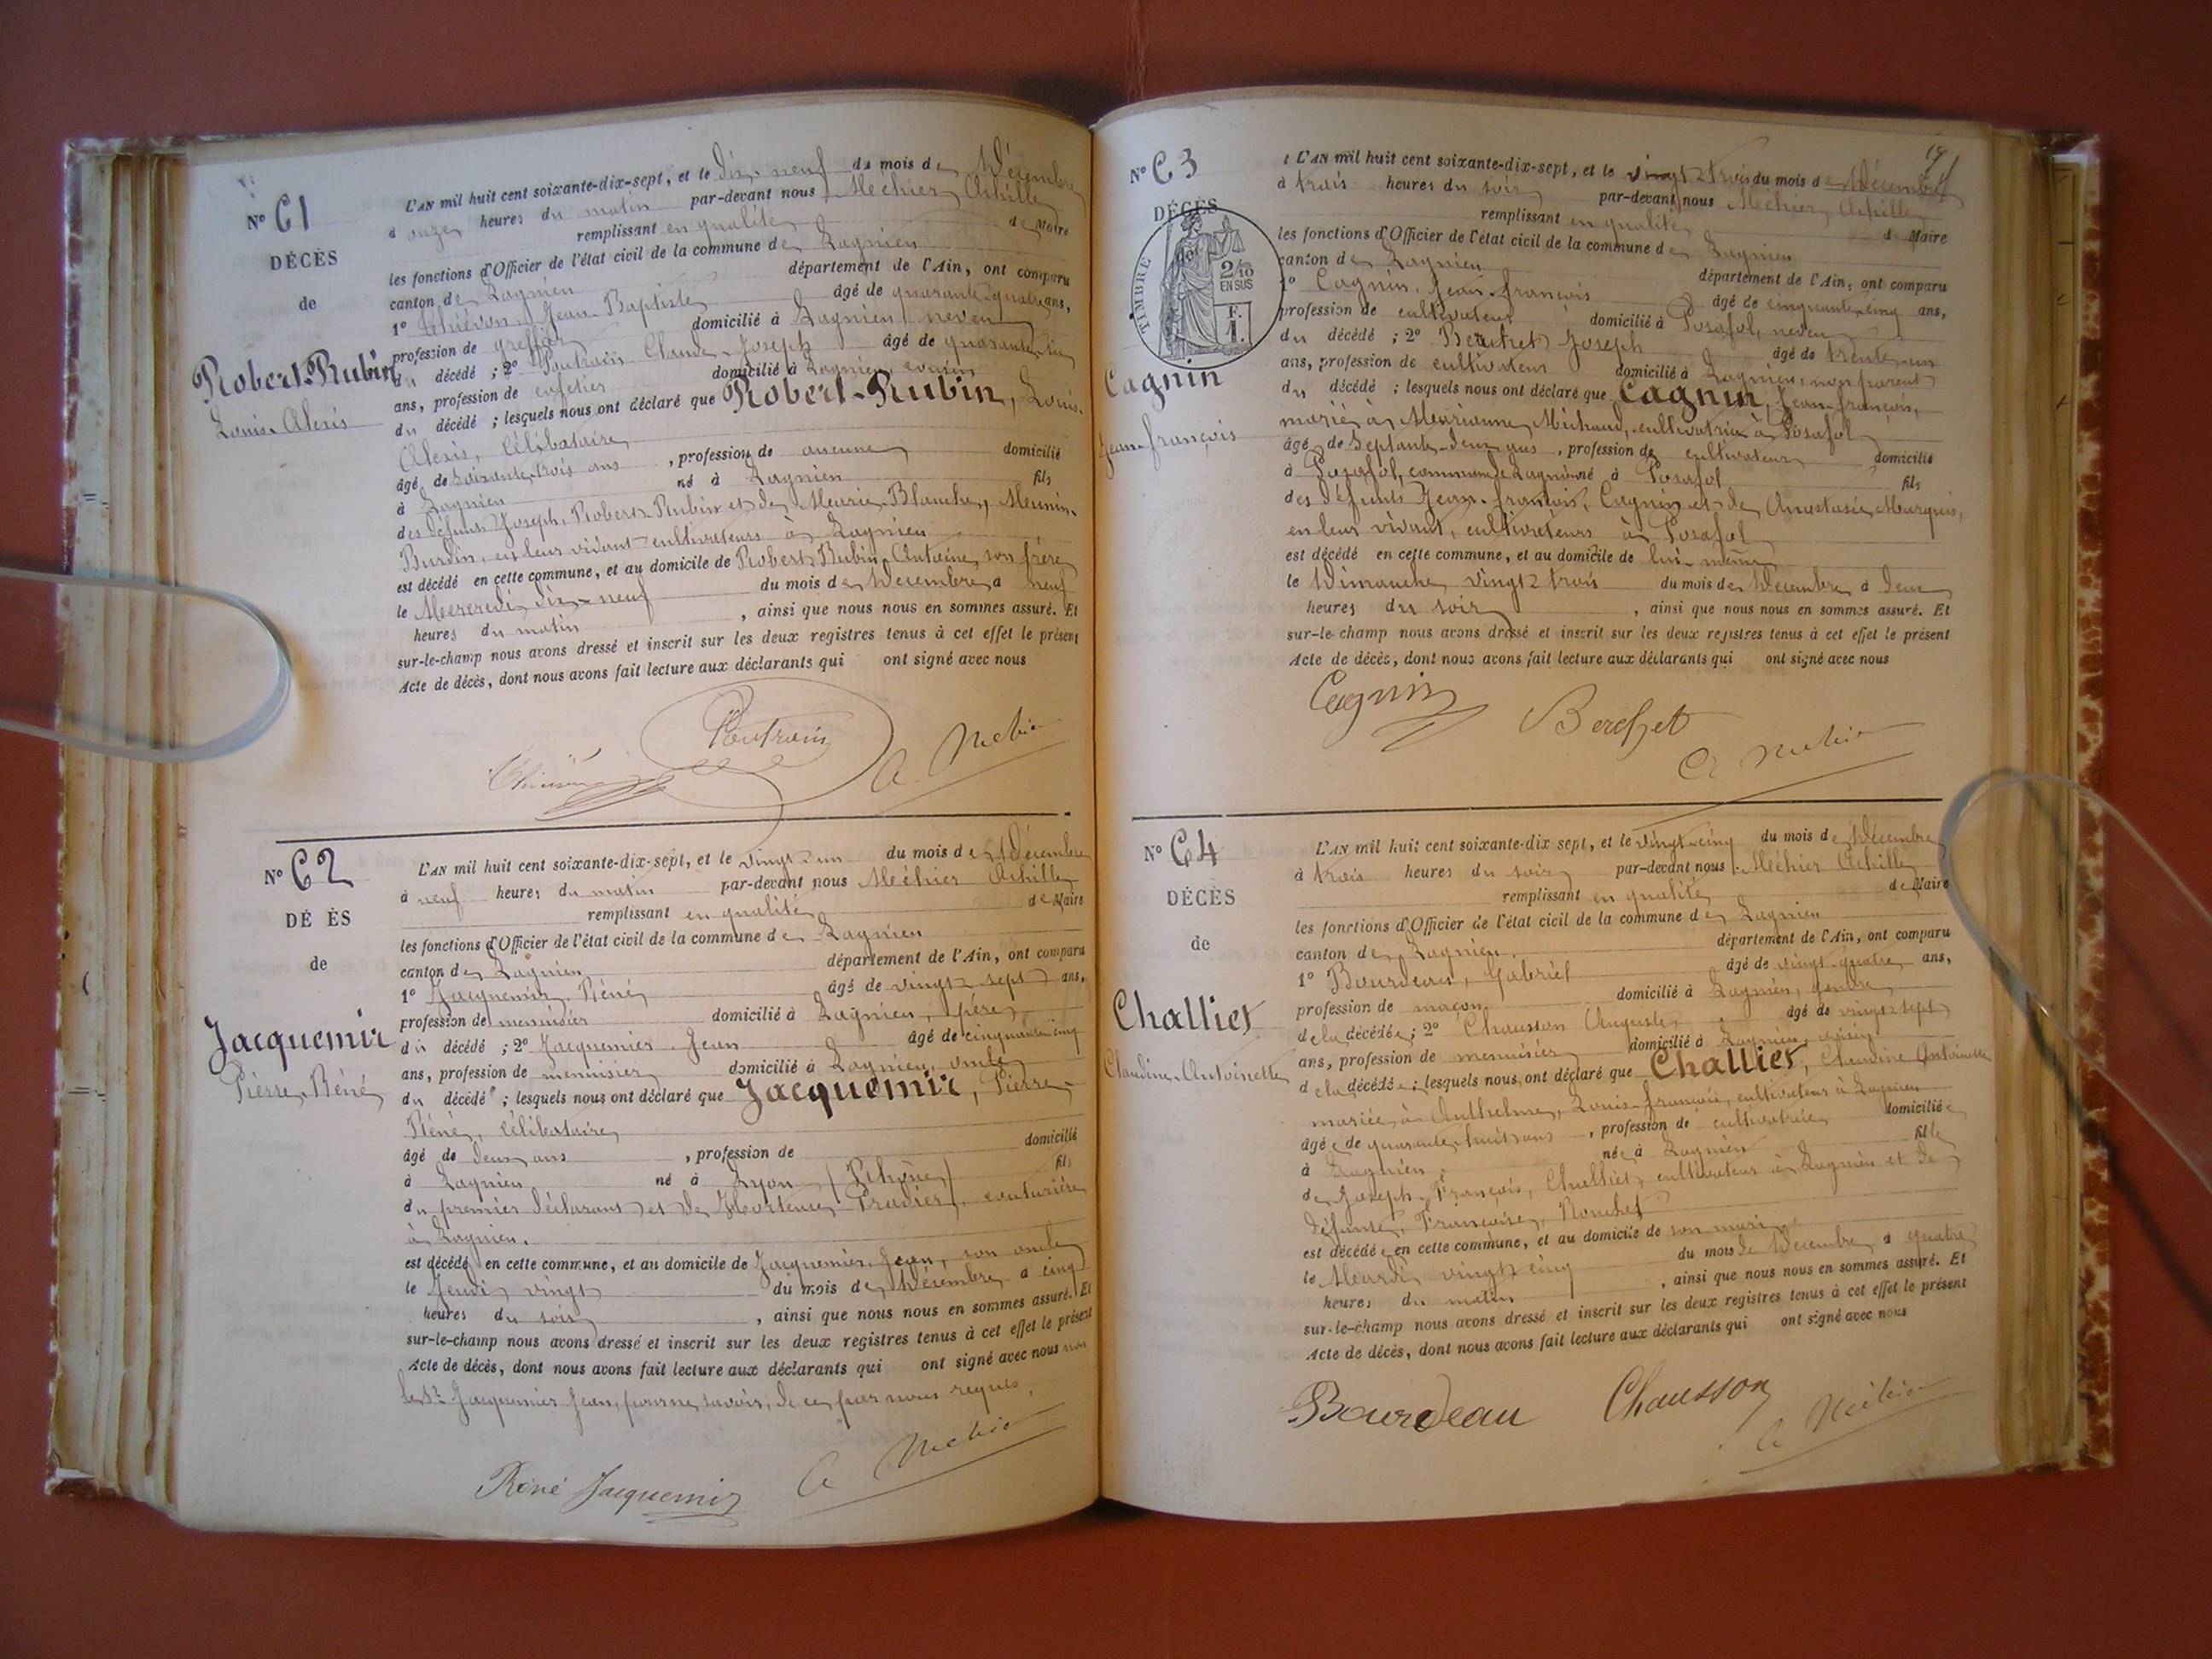 N° 61
DÉCÈS
de
Robert-Rubin
Louis-Alexis
L'AN mil huit cent soixante-dix-sept, et le dix-neuf du mois de Décembre
à onze heures du matin par-devant nous Méhier Achille
remplissant en qualité de Maire
les fonctions d'Officier de l'état civil de la commune de Lagnieu
canton de Lagnieu département de l'Ain, ont comparu
1° Thiévon, Jean-Baptiste âgé de quarante-quatre ans,
profession de greffier domicilié à Lagnieu, neveu
du décédé ; 2° Claude-Joseph âgé de quarante-six
ans, profession de cafetier domicilié à Lagnieu, cousin
du décédé ; lesquels nous ont déclaré que Robert-Rubin, Louis-
Alexis, célibataire
âgé de soixante-trois ans , profession de aucune domicilié
à Lagnieu né à Lagnieu fils
des défunts Joseph, Robert-Rubin et de Marie-Blanche, Meunin-
Burdin, en leur vivant cultivateurs à Lagnieu
est décédé en cette commune, et au domicile de Robert-Rubin, Antoine, son frère
le Mercredi dix-neuf du mois de Décembre à neuf
heures du matin , ainsi que nous nous en sommes assuré. Et
sur-le-champ nous avons dressé et inscrit sur les deux registres tenus à cet effet le présent
Acte de décès, dont nous avons fait lecture aux déclarants qui ont signé avec nous
A. Méhier
N° 62
DÉ ÈS
de
Jacquemir
Pierre-Réné
L'AN mil huit cent soixante-dix-sept, et le vingt-un du mois de Décembre
à neuf heures du matin par-devant nous Méhier Achille
remplissant en qualité de Maire
les fonctions d'Officier de l'état civil de la commune de Lagnieu
canton de Lagnieu département de l'Ain, ont comparu
1° Jacquemir, Réné âgé de vingt-sept ans,
profession de menuisier domicilié à Lagnieu, père
du décédé ; 2° Jacquemier Jean âgé de cinquante-cinq
ans, profession de menuisier domicilié à Lagnieu, oncle
du décédé ; lesquels nous ont déclaré que Jacquemir, Pierre-
Réné, célibataire
âgé de deux ans , profession de domicilié
à Lagnieu né à Lyon (Rhône) fils
du premier déclarant et de Hortence Pradier, couturière
à Lagnieu.
est décédé en cette commune, et au domicile de Jacquemier Jean, son oncle
le Jeudi vingt du mois de Décembre à cinq
heures du soir , ainsi que nous nous en sommes assuré. Et
sur-le-champ nous avons dressé et inscrit sur les deux registres tenus à cet effet le présent
Acte de décès, dont nous avons fait lecture aux déclarants qui ont signé avec nous non
le Sr Jacquemier Jean, pour ne savoir, de ce par nous requis.
Réné Jacquemir
A. Méhier
N° 63
DÉCÈS
TIMBRE
2/10
EN SUS
F.
1.
Cagnin
Jean-françois
L'AN mil huit cent soixante-dix-sept, et le vingt-trois du mois de Décembre
à trois heures du soir par-devant nous Méhier Achille
remplissant en qualité de Maire
les fonctions d'Officier de l'état civil de la commune de Lagnieu
canton de Lagnieu département de l'Ain, ont comparu
1° Cagnin, Jean-françois âgé de cinquante-cinq ans,
profession de cultivateur domicilié à Posafol, neveu
du décédé ; 2° Berthet Joseph âgé de trente-un
ans, profession de cultivateur domicilié à Lagnieu, non parent
du décédé ; lesquels nous ont déclaré que Cagnin, Jean-françois,
marié à Marianne Michaud, cultivatrice à Posafol
âgé de Septante-deux ans , profession de cultivateur domicilié
à Posafol, commune de Lagnieu né à Posafol fils
des défunts Jean-françois, Cagnin et de Anastasie Marquis,
en leur vivant, cultivateurs à Posafol
est décédé en cette commune, et au domicile de lui-même
le Dimanche vingt-trois du mois de Décembre à deux
heures du soir , ainsi que nous nous en sommes assuré. Et
sur-le-champ nous avons dressé et inscrit sur les deux registres tenus à cet effet le présent
Acte de décès, dont nous avons fait lecture aux déclarants qui ont signé avec nous
Cagnin
Berthet
A. Méhier
N° 64
DÉCÈS
de
Challier
Claudine-Antoinette
L'AN mil huit cent soixante-dix sept, et le vingt-cinq du mois de Décembre
à trois heures du soir par-devant nous Méhier Achille
remplissant en qualité de Maire
les fonctions d'Officier de l'état civil de la commune de Lagnieu
canton de Lagnieu département de l'Ain, ont comparu
1° Bourdeau, Gabriel âgé de vingt-quatre ans,
profession de maçon domicilié à Lagnieu, gendre
de la décédée ; 2° Chausson Auguste, âgé de vingt-sept
ans, profession de menuisier domicilié à Lagnieu, voisin
de la décédée ; lesquels nous ont déclaré que Challier, Claudine Antoinette
mariée à Anthelme, Louis-françois, cultivateur à Lagnieu
âgée de quarante-huit ans , profession de cultivatrice domiciliée
à Lagnieu née à Lagnieu fille
de Joseph-François, Challier, cultivateur à Lagnieu et de
défunte, Françoise,
est décédée en cette commune, et au domicile de son mari
le Mardi vingt-cinq du mois de Décembre à quatre
heures du matin , ainsi que nous nous en sommes assuré. Et
sur-le-champ nous avons dressé et inscrit sur les deux registres tenus à cet effet le présent
Acte de décès, dont nous avons fait lecture aux déclarants qui ont signé avec nous
Bourdeau
Chausson
A. Méhier